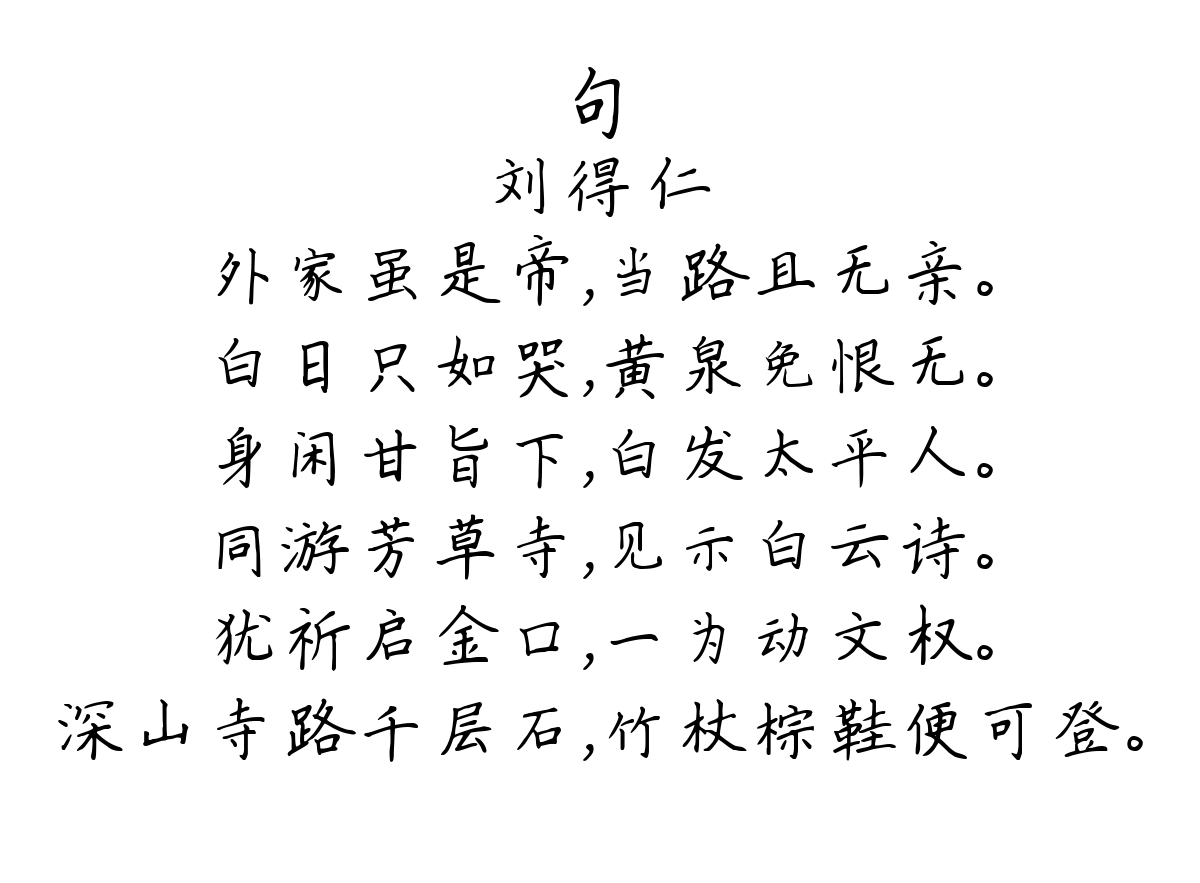 句
刘得仁
外家虽是帝,当路且无亲。
白日只如哭,黄泉免恨无。
身闲甘旨下,白发太平人。
同游芳草寺,见示白云诗。
犹祈启金口,一为动文权。
深山寺路千层石,竹杖棕鞋便可登。